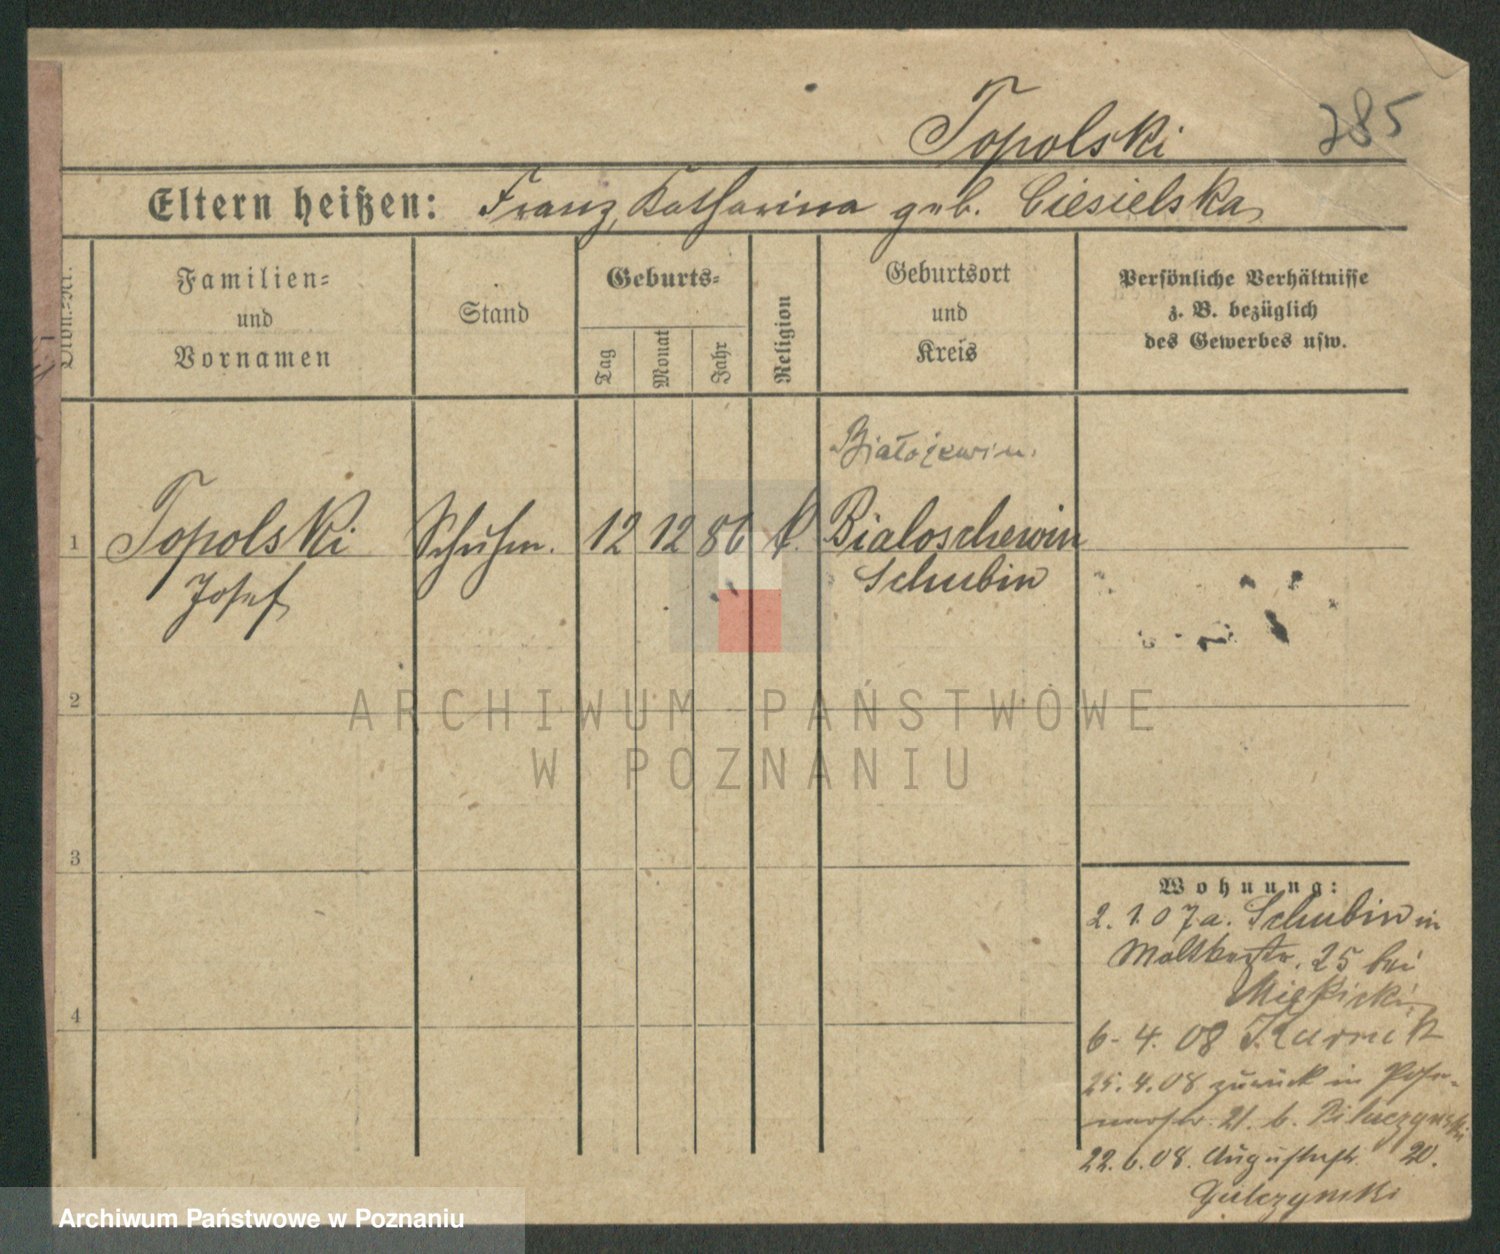 Topolski 285
Eltern heißen: Franz, Katharina geb. Ciesielska
Ordn.-Nr.
Familien-
und
Vornamen
Stand
Geburts-
Tag
Monat
Jahr
Religion
Geburtsort
und
Kreis
Persönliche Verhältnisse
z. B. bezüglich
des Gewerbes usw.
Białożewin.
1 Topolski Schuhm. 12 12 86 k. Bialoschewin
Josef Schubin
2
3
4
Wohnung:
2. 1. 07 a. Schubin in
Moltkestr. 25 bei
6. 4. 08
25. 4. 08 zurück in Posen
21. b.
22. 6. 08. Augustastr. 20.
Gulczynski
ARCHIWUM PAŃSTWOWE
W POZNANIU
Archiwum Państwowe w Poznaniu